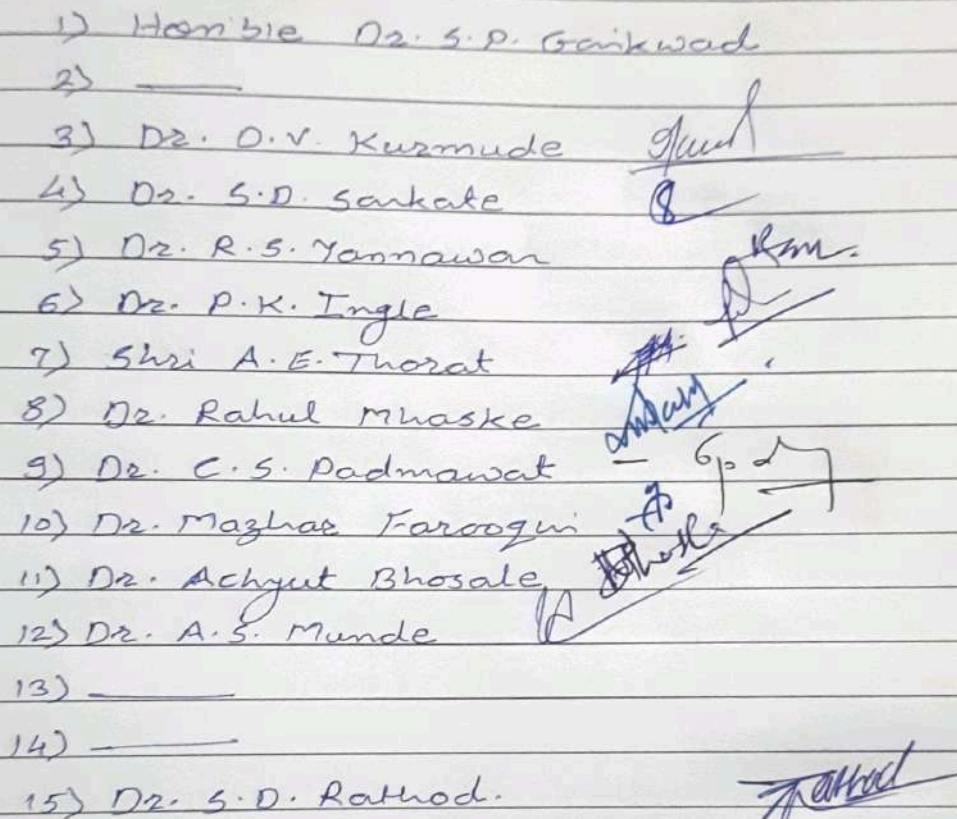 1) Hon'ble Dr. S.P. Gaikwad
2) ———
3) Dr. O.V. Kurmude
4) Dr. S.D. Sarkate
5) Dr. R.S. Yannawar
6) Dr. P.K. Ingle
7) Shri A.E. Thorat
8) Dr. Rahul Mhaske
9) Dr. C.S. Padmawat
10) Dr. Mazhar Farooqui
11) Dr. Achyut Bhosale
12) Dr. A.S. Munde
13) ———
14) ———
15) Dr. S.D. Rathod. Rathod